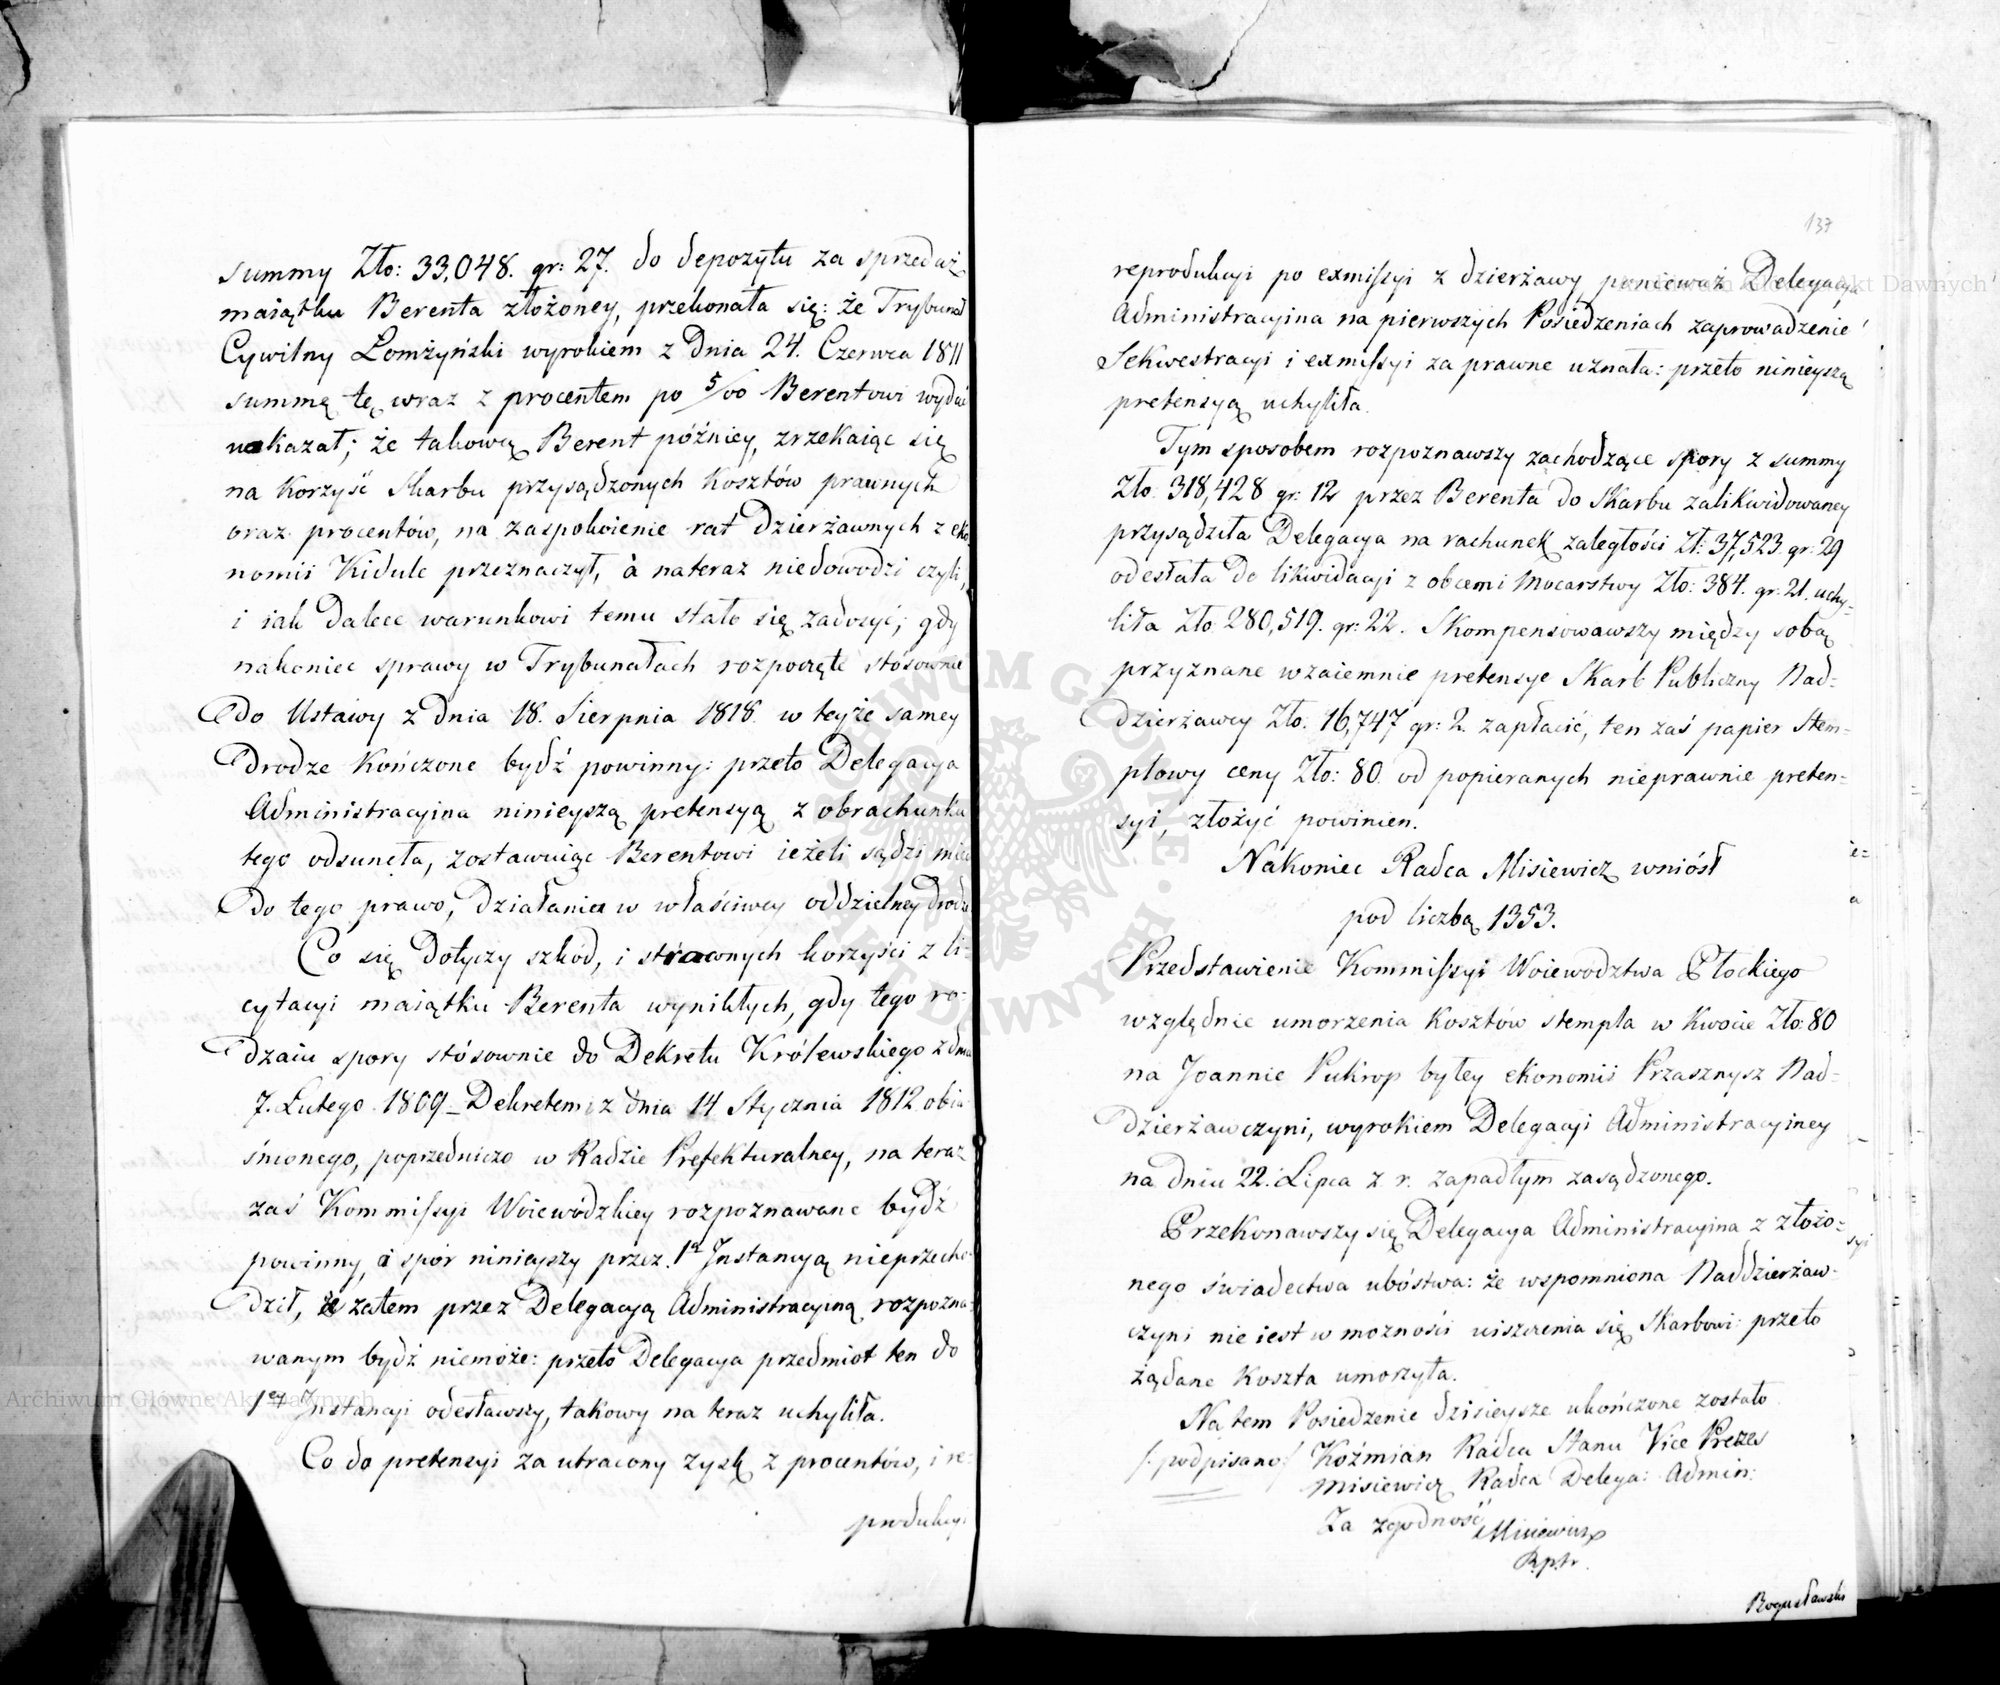 summy Zło: 33,048. gr: 27. do depozytu za sprzedaż
maiątku Berenta złożoney, przekonała się: że Trybunał
Cywilny Łomżyński wyrokiem z dnia 24. Czerwca 1811
summę tę wraz z procentem po 5/00 Berentowi wydać
nakazał; że takową Berent późniey, zrzekaiąc się
na korzyść Skarbu przysądzonych kosztów prawnych
oraz procentów, na zaspokoienie rat dzierżawnych z eko-
nomii Kidule przeznaczył, à nateraz niedowodzi czyli,
i iak dalece warunkowi temu stało się zadosyć; gdy
nakoniec sprawy w Trybunałach rozpoczęte stosownie
do Ustawy z dnia 18. Sierpnia 1818. w teyże samey
drodze kończone bydź powinny: przeto Delegacya
Administracyina ninieyszą pretensyą z obrachunku
tego odsunęła, zostawuiąc Berentowi ieżeli sądzi mieć
do tego prawo, działanie w właściwey oddzielney drodze
Co się dotyczy szkód, i straconych korzyści z li-
cytacyi maiątku Berenta wynikłych, gdy tego ro-
dzaiu spory stósownie do Dekretu Królewskiego z dnia
7. Lutego 1809 Dekretem z dnia 14 Stycznia 1812 obia-
śnionego, poprzedniczo w Radzie Prefekturalney, na teraz
zaś Kommissyi Woiewódzkiey rozpoznawane bydź
powinny, a spór ninieyszy przez 1ą Instancyą nieprzecho-
dził, że zatem przez Delegacyą Administracyiną rozpozna-
wanym bydź niemoże: przeto Delegacya przedmiot ten do
1ey Instancyi odesławszy, takowy na teraz uchyliła.
Co do pretensyi za utracony zysk z procentów, i re-
produkcyi
137
reprodukcyi po exmissyi z dzierżawy ponieważ Delegacya
Administracyina na pierwszych Posiedzeniach zaprowadzenie
Sekwestracyi i exmissyi za prawne uznała: przeto ninieyszą
pretensyą uchyliła.
Tym sposobem rozpoznawszy zachodzące spory z summy
Zło: 318,428 gr: 12 przez Berenta do Skarbu zalikwidowaney
przysądziła Delegacya na rachunek zaległości Zł: 37,523. gr: 29
odesłała do likwidacyi z obcemi Mocarstwy Zło: 384. gr: 21. uchy-
liła Zło 280,519. gr: 22. Skompensowawszy między sobą
przyznane wzaiemnie pretensye Skarb Publiczny Nad-
dzierżawcy Zło. 16,747 gr: 2. zapłacić, ten zaś papier stem-
plowy ceny Zło: 80. od popieranych nieprawnie preten-
syi, złożyć powinien.
Nakoniec Radca Misiewicz wniósł
pod liczbą 1353.
Przedstawienie Kommissyi Woiewodztwa Płockiego
względnie umorzenia kosztów stempla w kwocie Zło: 80
na Joannie Pukrop byłey ekonomii Przasznysz Nad-
dzierżawczyni, wyrokiem Delegacyi Administracyiney
na dniu 22. Lipca z. r. zapadłym zasądzonego.
Przekonawszy się Delegacya Administracyina z złożo-
nego świadectwa ubóstwa: że wspomniona Naddzierżaw-
czyni nie iest w możności uiszczenia się Skarbowi: przeto
żądane koszta umorzyła.
Na tem Posiedzenie dzisieysze ukończone zostało.
/: podpisano/ Koźmian Radca Stanu Vice Prezes
Misiewicz Radca Delega: Admin:
Za zgodność Misiewicz
Bogusławski
Archiwum Główne Akt Dawnych